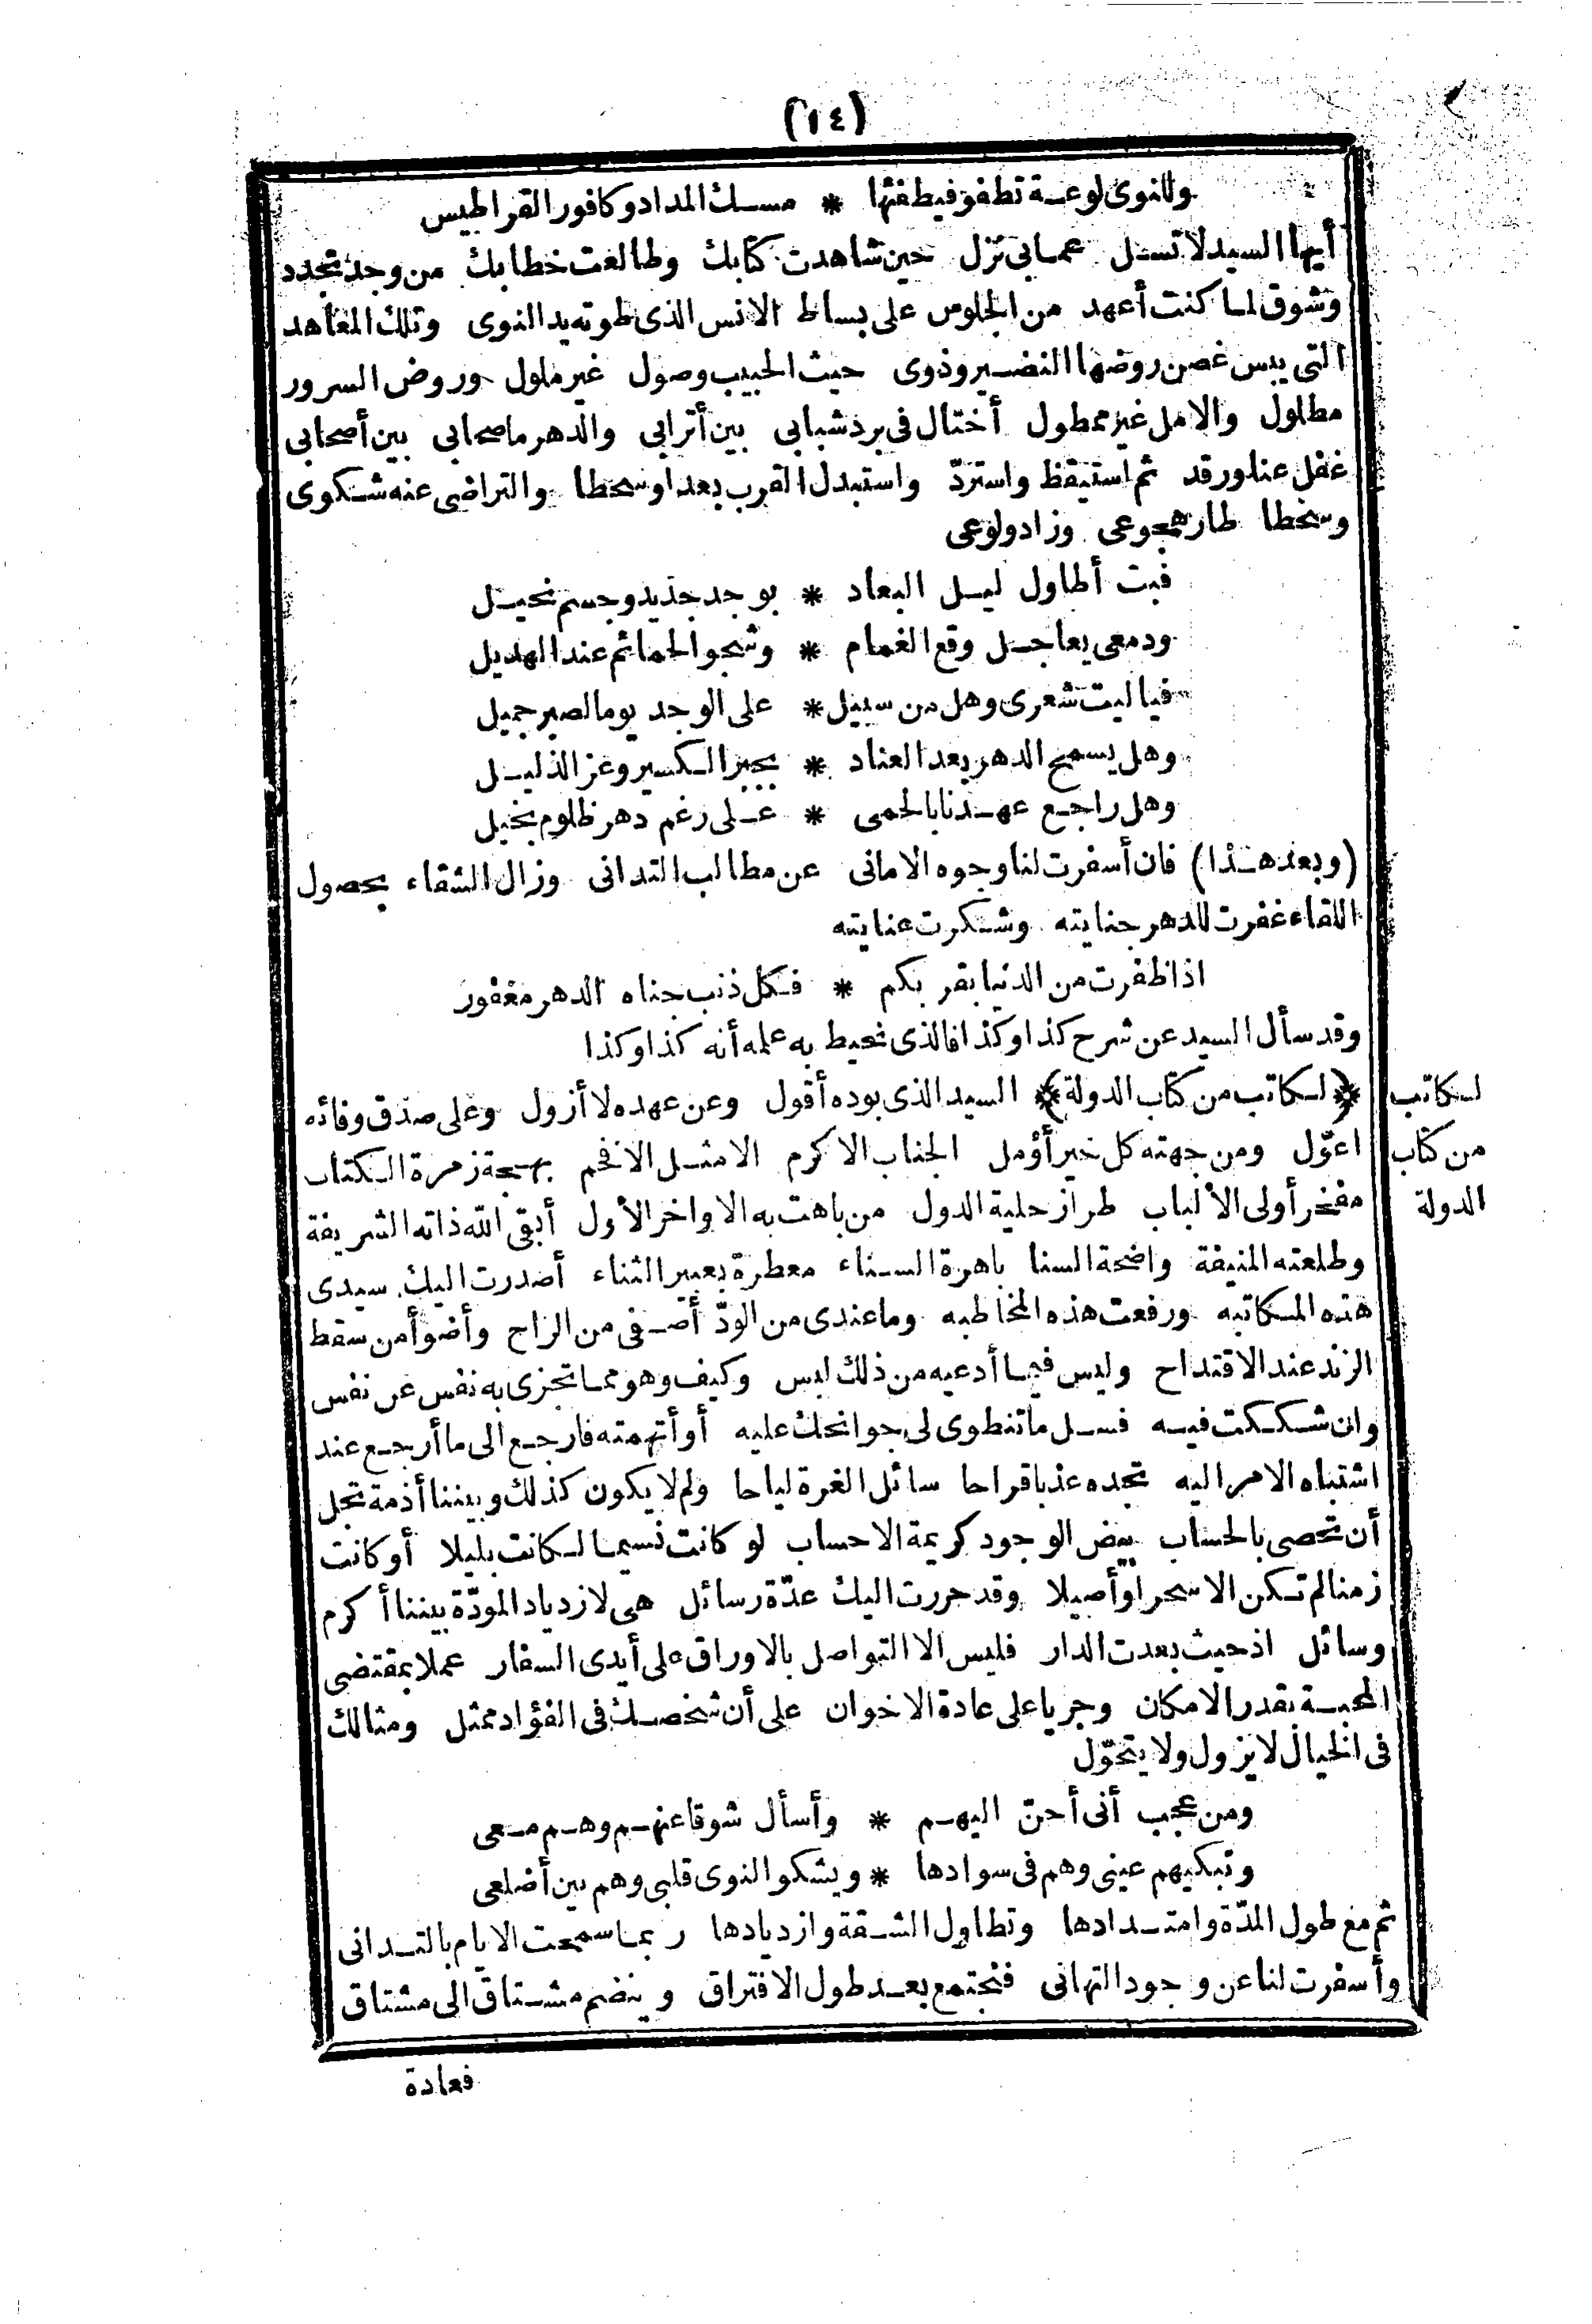 (١٤)
وللنوى لوعة تطفو فيطفئها * مسك المداد وكافور القراطيس
أيها السيد لا تسل عما بى نزل حين شاهدت كتابك وطالعت خطابك من وجد تجدد
وشوق لما كنت أعهد من الجلوس على بساط الانس الذى طوته يد النوى وتلك المعاهد
التى يبس غصن روضها النضير وذوى حيث الحبيب وصول غير ملول وروض السرور
مطلول والامل غير ممطول أختال فى برد شبابى بين أترابى والدهر ما صحا بى بين أصحابى
غفل عنا ورقد ثم استيقظ واستردّ واستبدل القرب بعدا وسخطا والتراضى عنه شكوى
وسخطا طار هجوعى وزاد ولوعى
فبت أطاول ليل البعاد * بوجد جديد وجسم نحيل
ودمعى يعاجل وقع الغمام * وشجو الحمائم عند الهديل
فيا ليت شعرى وهل من سبيل * على الوجد يوما لصبر جميل
وهل يسمح الدهر بعد العناد * بجبر الكسير وعز الذليل
وهل راجع عهدنا بالحمى * على رغم دهر ظلوم بخيل
(وبعد هذا) فان أسفرت لنا وجوه الامانى عن مطالب التدانى وزال الشقاء بحصول
اللقاء غفرت للدهر جنايته وشكرت عنايته
اذا ظفرت من الدنيا بقربكم * فكل ذنب جناه الدهر مغفور
وقد سأل السيد عن شرح كذا وكذا فالذى نحيط به علمه أنه كذا وكذا
لكاتب
من كتاب
الدولة
﴿لكاتب من كتاب الدولة﴾ السيد الذى بوده أقول وعن عهده لا أزول وعلى صدق وفائه
اعوّل ومن جهته كل خير أؤمل الجناب الاكرم الامثل الافخم بهجة زمرة الكتاب
مفخر أولى الألباب طراز حلية الدول من باهت به الاواخر الأول أبقى الله ذاته الشريفة
وطلعته المنيفة واضحة السنا باهرة السناء معطرة بعبير الثناء أصدرت اليك سيدى
هذه المكاتبه ورفعت هذه المخاطبه وما عندى من الودّ أصفى من الراح وأضوأ من سقط
الزند عند الاقتداح وليس فيما أدعيه من ذلك لبس وكيف وهو مما تجزى به نفس عن نفس
وان شككت فيه فسل ما تنطوى لى جوانحك عليه أو أتهمته فارجع الى ما أرجع عند
اشتباه الامر اليه تجده عذبا قراحا سائل الغرة لياحا ولم لا يكون كذلك وبيننا أذمة تجل
أن تحصى بالحساب بيض الوجوه كريمة الاحساب لو كانت نسيما لكانت بليلا أو كانت
زمنا لم تكن الا سحرا وأصيلا وقد حررت اليك عدّة رسائل هى لازدياد المودّة بيننا أكرم
وسائل اذ حيث بعدت الدار فليس الا التواصل بالاوراق على أيدى السفار عملا بمقتضى
المحبة بقدر الامكان وجريا على عادة الاخوان على أن شخصك فى الفؤاد ممثل ومثالك
فى الخيال لا يزول ولا يتحوّل
ومن عجب أنى أحنّ اليهم * وأسأل شوقا عنهم وهم معى
وتبكيهم عينى وهم فى سوادها * ويشكو النوى قلبى وهم بين أضلعى
ثم مع طول المدّة وامتدادها وتطاول الشقة وازديادها ربما سمحت الايام بالتدانى
وأسفرت لنا عن وجود التهانى فنجتمع بعد طول الافتراق وينضم مشتاق الى مشتاق
فعادة